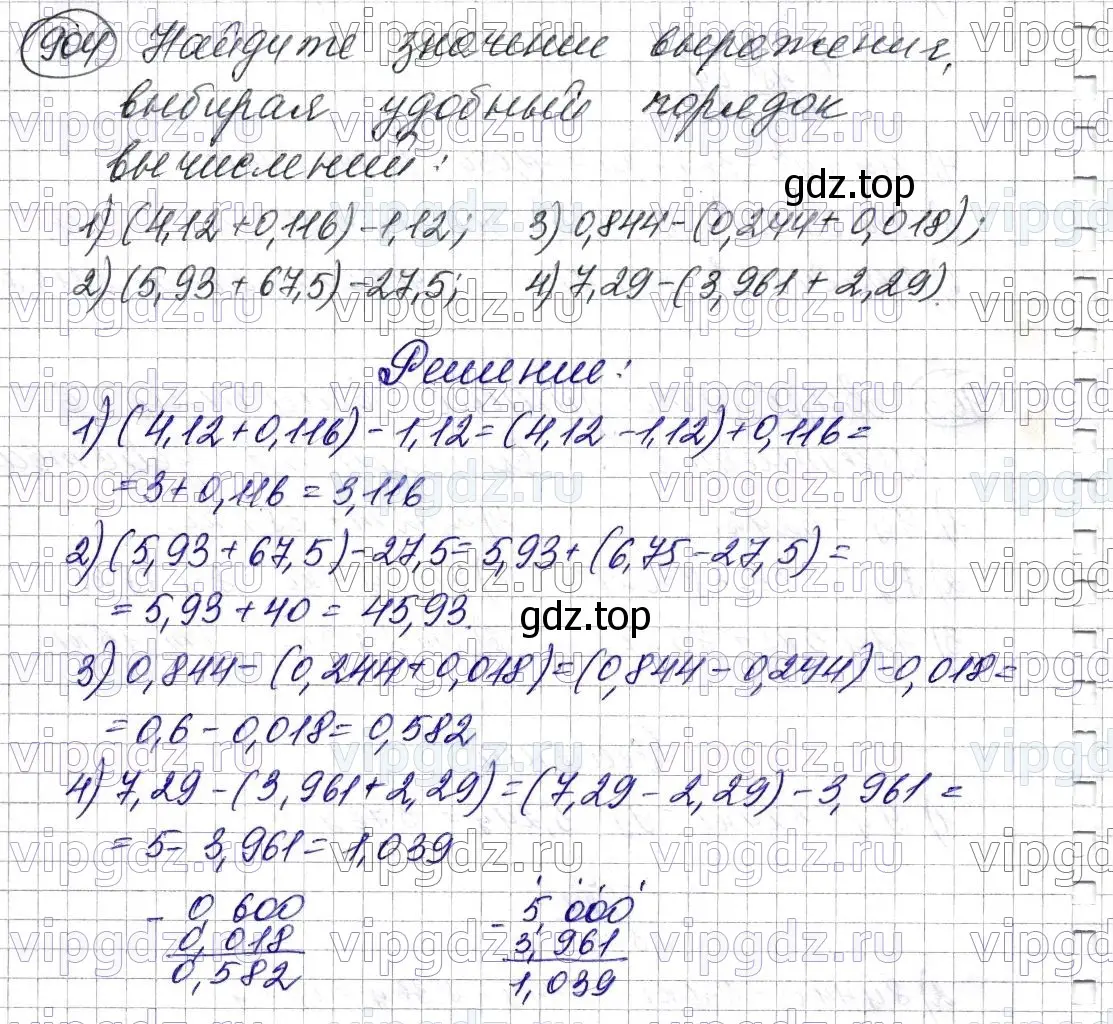 904 Найдите значение выражения,
выбирая удобный порядок
вычислений:
gdz.top
1) (4,12+0,116)-1,12; 3) 0,844-(0,244+0,018);
2) (5,93+67,5)-27,5; 4) 7,29-(3,961+2,29).
Решение:
1) (4,12+0,116)-1,12=(4,12-1,12)+0,116=
=3+0,116=3,116
2) (5,93+67,5)-27,5=5,93+(6,75-27,5)=
=5,93+40=45,93.
gdz.top
3) 0,844-(0,244+0,018)=(0,844-0,244)-0,018=
=0,6-0,018=0,582
4) 7,29-(3,961+2,29)=(7,29-2,29)-3,961=
=5-3,961=1,039
- 0,600 - 5,000
0,018 3,961
0,582 1,039